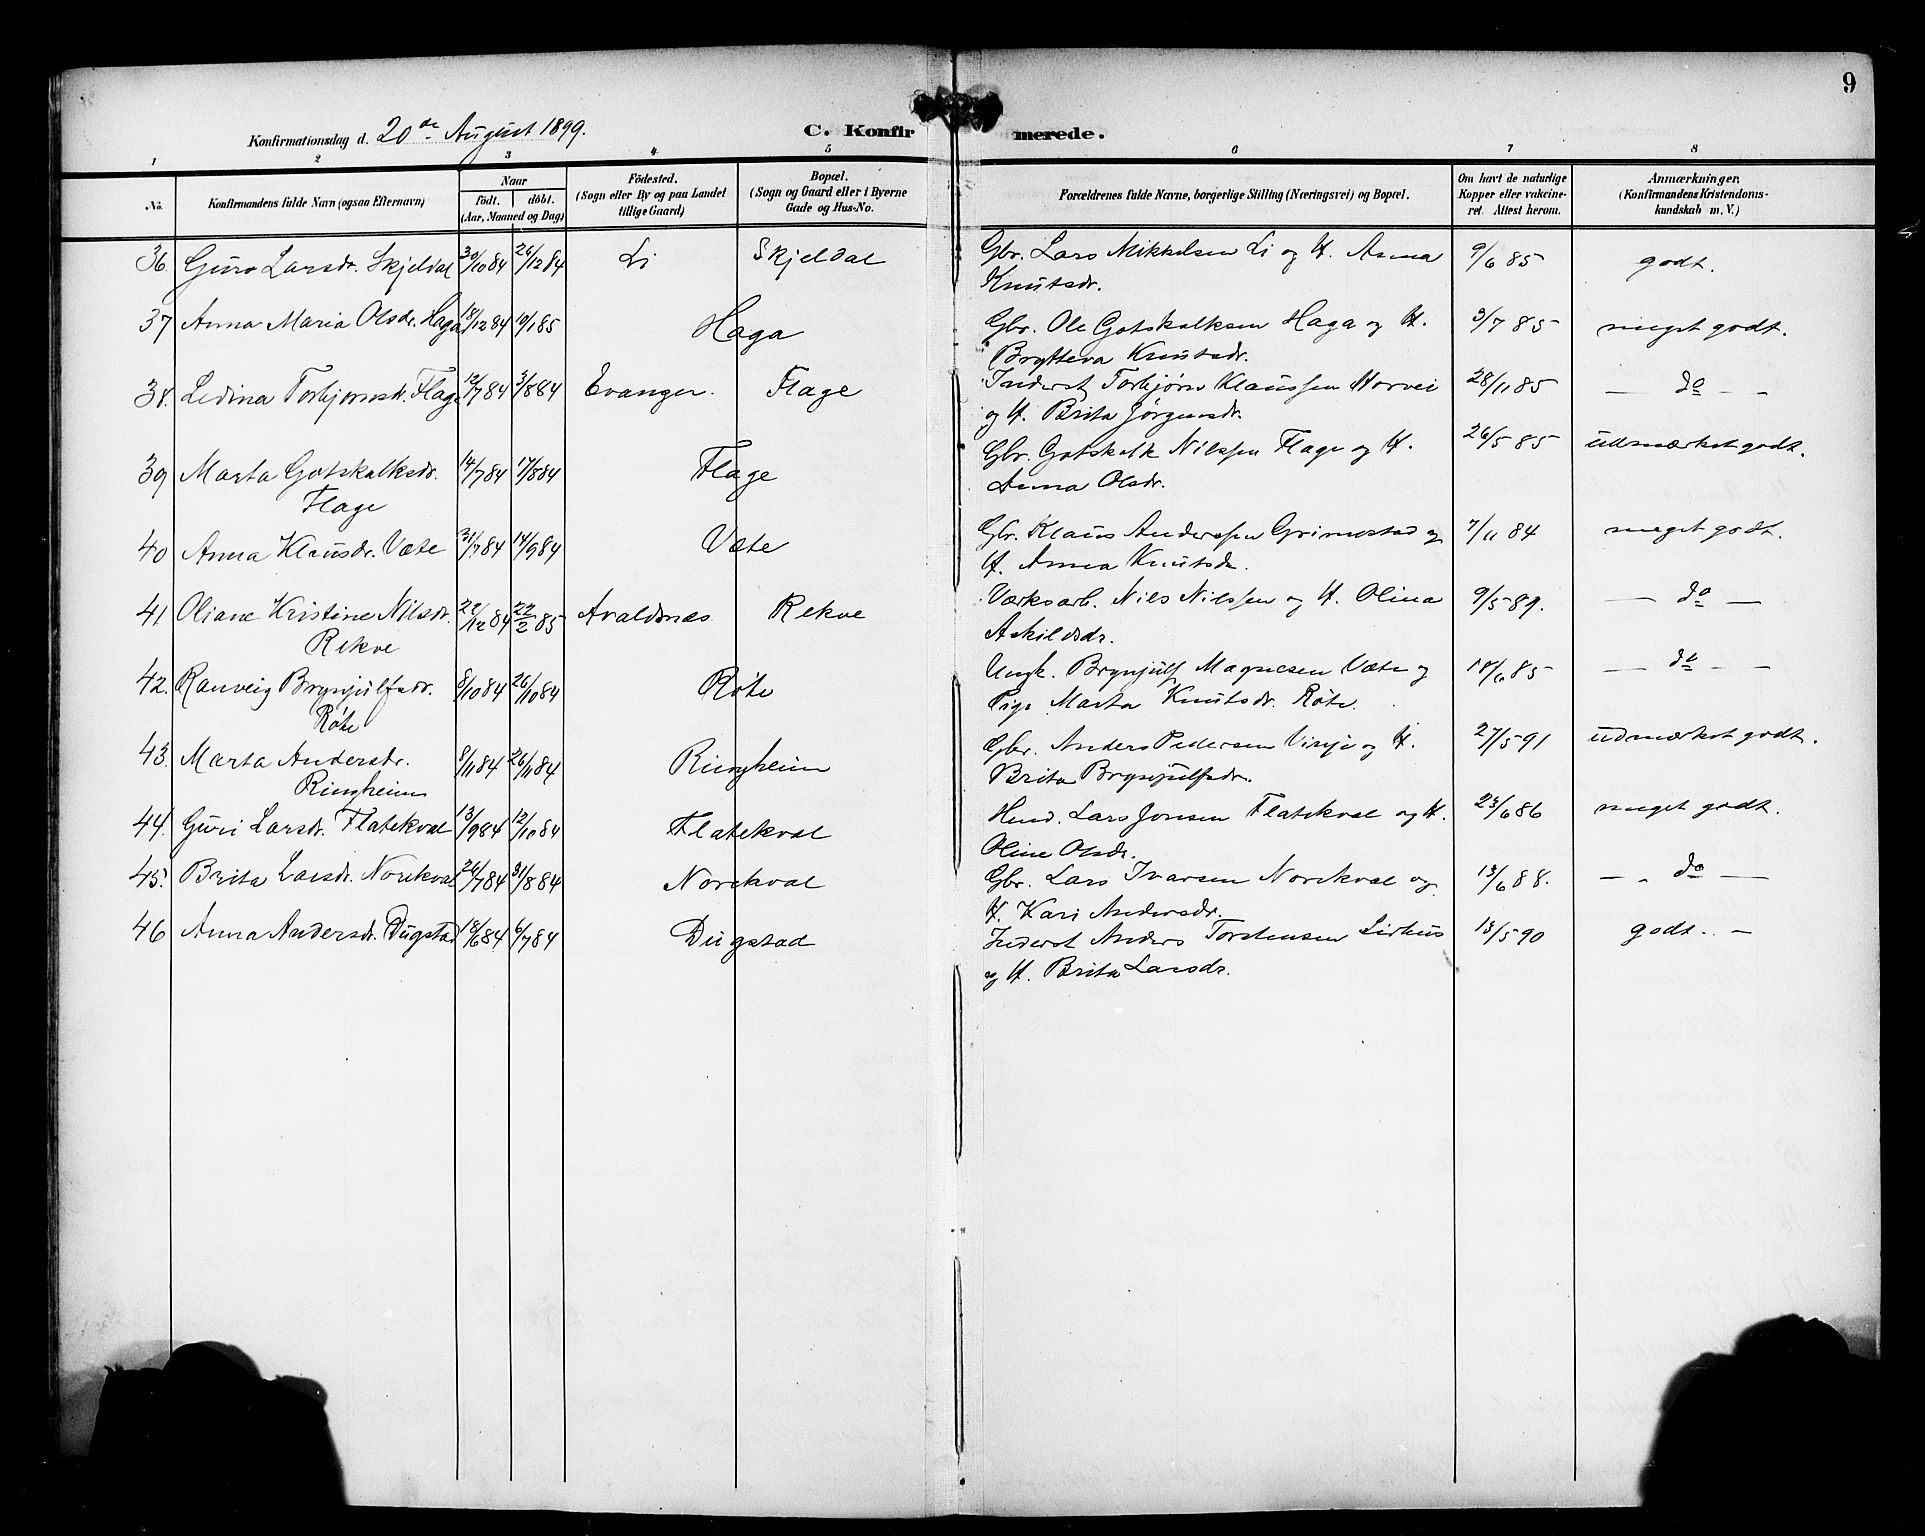 9
Konfirmationsdag d. 20de August 1899.
C. Konfirmerede.
1 2 3 4 5 6 7 8
No. Konfirmandens fulde Navn (ogsaa Efternavn) Naar født. døbt. (Aar, Maaned og Dag) Födested. (Sogn eller By og paa Landet tillige Gaard) Bopæl. (Sogn og Gaard eller i Byerne Gade og Hus-No. Forældrenes fulde Navne, borgerlige Stilling (Næringsvei) og Bopæl. Om havt de naturlige Kopper eller vakcineret. Attest herom. Anmærkninger, (Konfirmandens Kristendomskundskab m. V.)
36. Guro Larsdr. Skjeldal 30/10 84 26/12 84 Li Skjeldal Gbr. Lars Mikkelsen Li og H. Anna 9/6 85 godt.
Knutsdr.
37 Anna Maria Olsdr. Haga 18/12 84 19/1 85 Haga Gbr. Ole Gotskalksen Haga og H. 3/7 85 meget godt.
Brytteva Knutsdr.
38. Ledina Torbjornsdr. Flage 12/7 84 3/8 84 Evanger. Flage Inderst Torbjørn Klaussen Horvei 28/11 85 — do — -
og H. Brita Jørgensdr.
39 Marta Gotskalksdr. 14/7 84 17/8 84 Flage Gbr. Gotskalk Nilssen Flage og H. 26/5 85 udmærket godt.
Flage Anna Olsdr.
40 Anna Klausdr. Væte 31/7 84 14/9 84 Væte Gbr. Klaus Anderssen Grimestad og 7/11 84 meget godt.
H. Anna Knutsdr.
41 Oliane Kristine Nilsdr. 22/12 84 22/2 85 Avaldsnæs Rekve Værksarb. Nils Nilssen og H. Olina 9/5 89. — do —
Rekve Askildsdr.
42. Ranveig Brynjulfsdr. 8/10 84 26/10 84 Røte Ungk. Brynjulf Magnesen Væte og 18/6 85 — do — -
Røte Pige Marta Knutsdr. Røte.
43. Marta Andersdr. 8/11 84 26/11 84 Ringheim Gbr. Anders Pedersen Vinje og H. 27/5 91 udmærket godt.
Ringheim Brita Brynjulfsdr.
44. Guri Larsdr. Flatekval 13/9 84 12/10 84 Flatekval Husd. Lars Jonsen Flatekval og H. 23/6 86 meget godt.
Oline Olsdr.
45. Brita Larsdr. Norekval 26/7 84 31/8 84 Norekval Gbr. Lars Ivarsen Norekval og 13/6 88. — do —
H. Kari Andersdr.
46 Anna Andersdr. Dugstad 18/6 84 6/7 84 Dugstad Inderst Anders Torstensen Lirhus 13/5 90 godt. -
og H. Brita Larsdr.